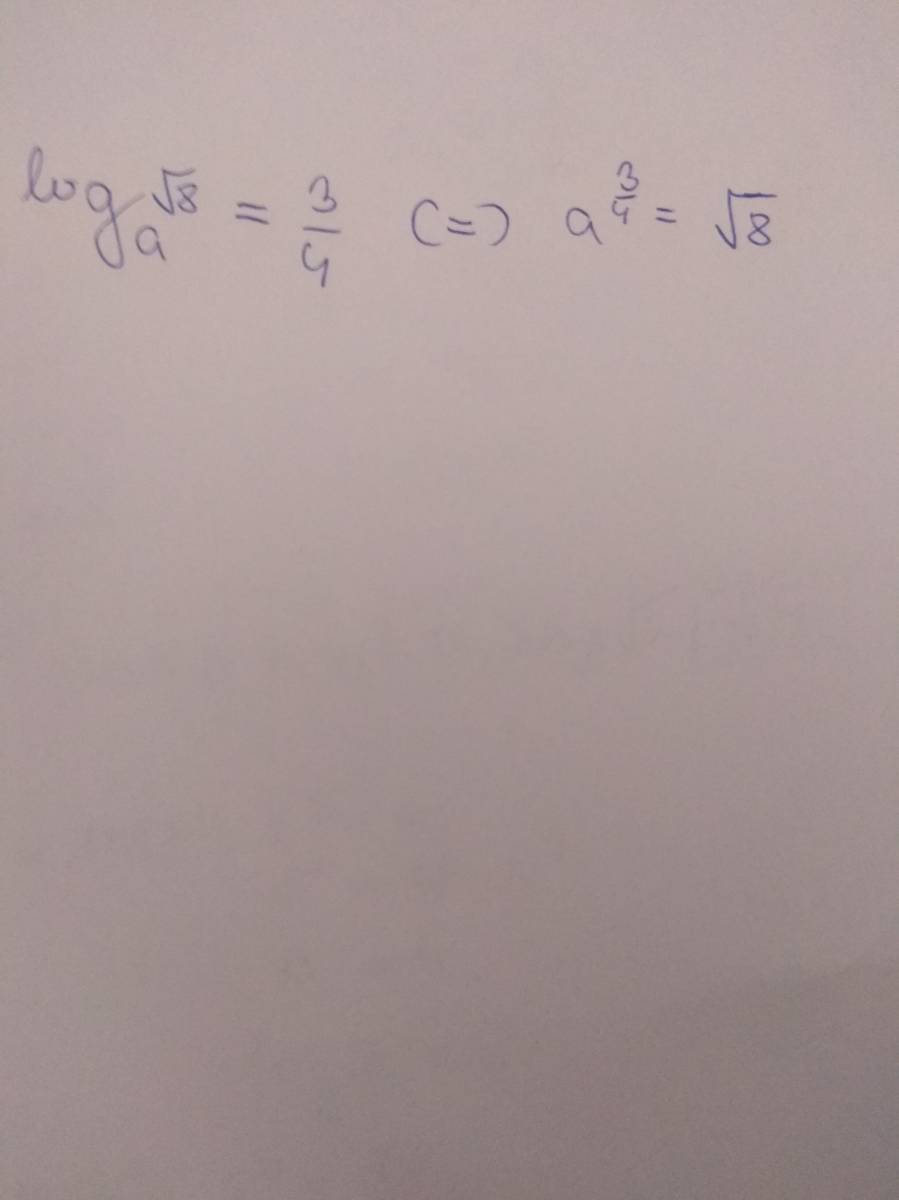 log_a √8 = 3/4 (=) a^(3/4) = √8